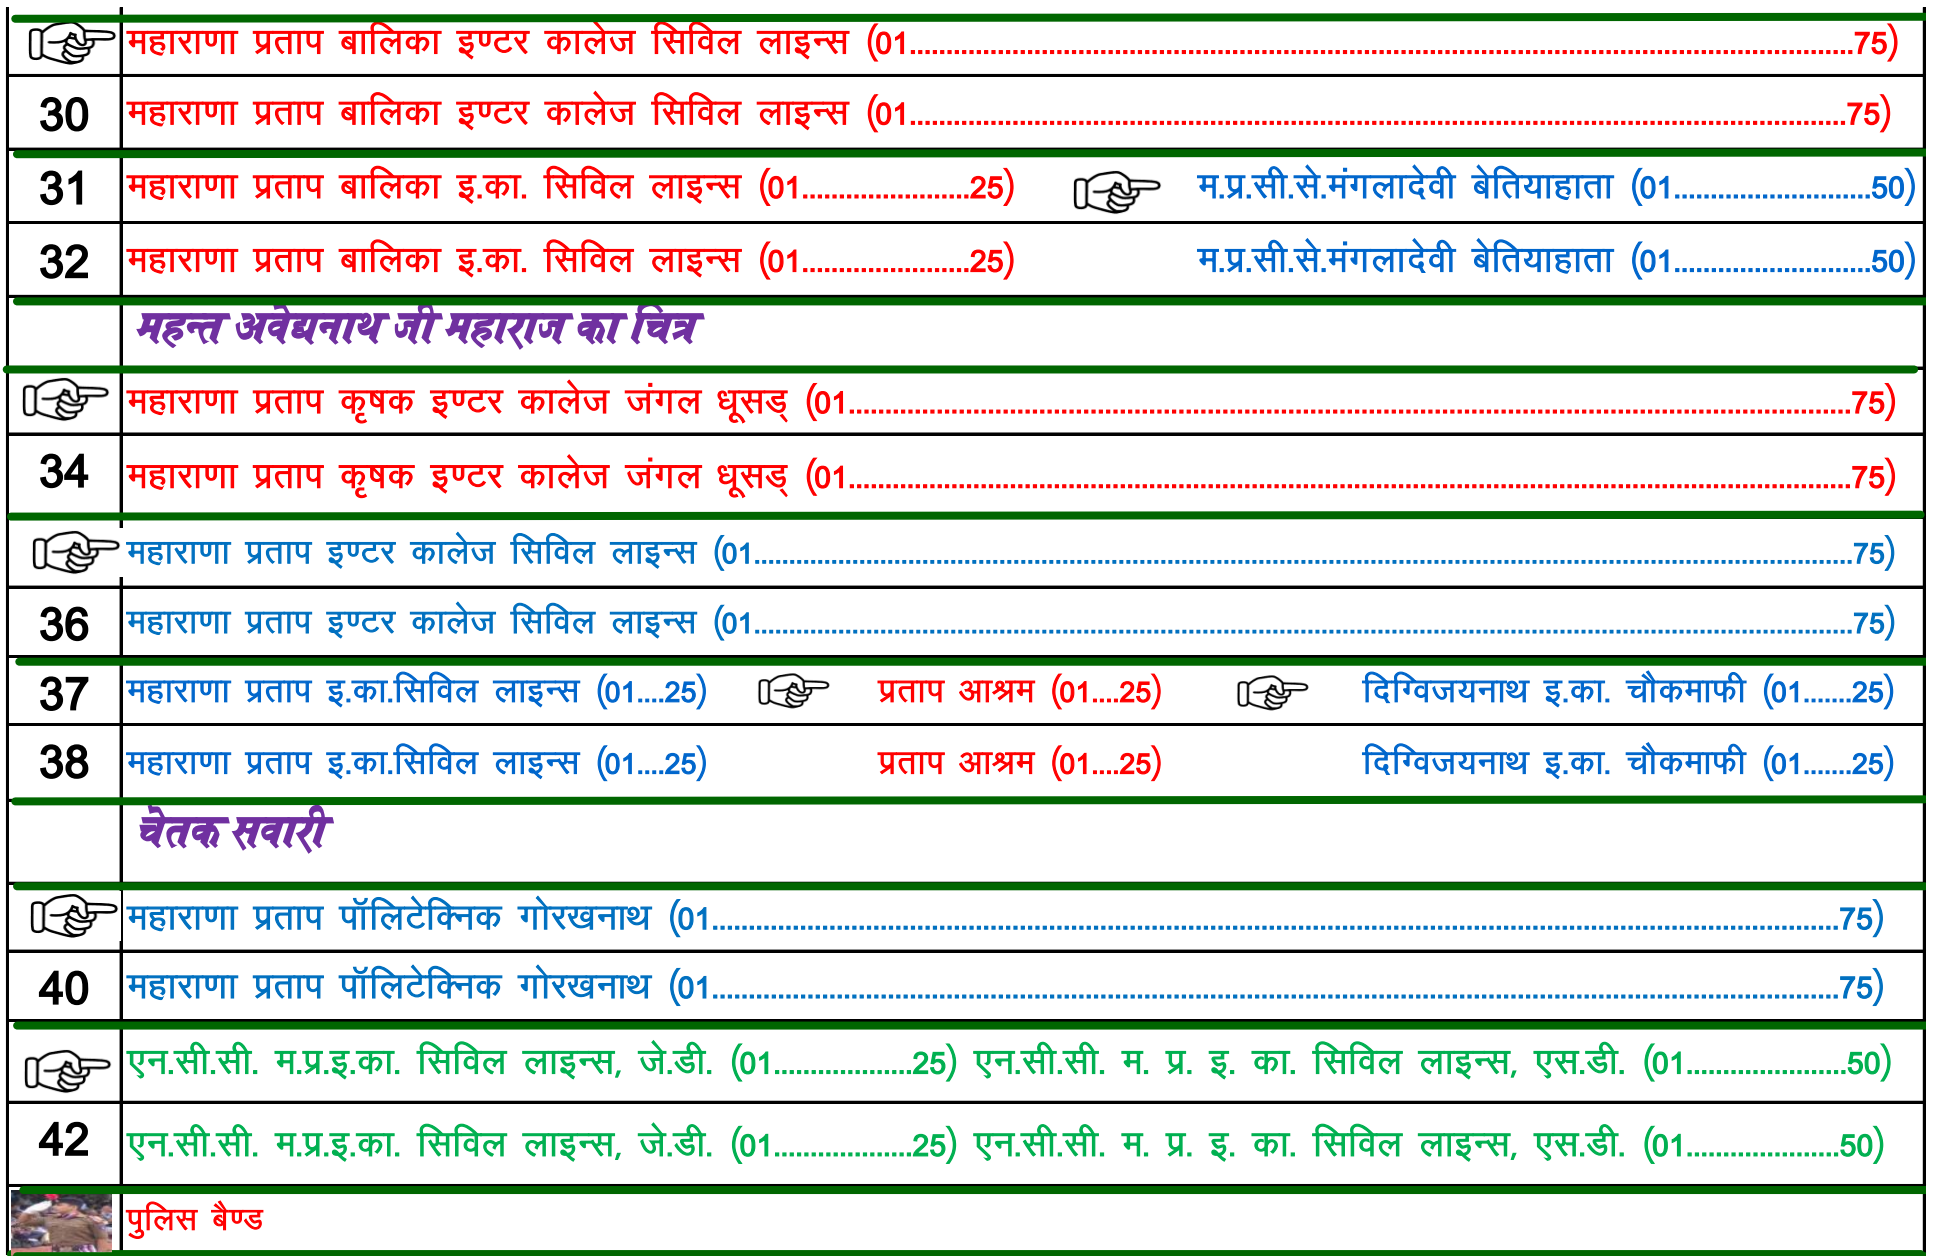 महाराणा प्रताप बालिका इण्टर कालेज सिविल लाइन्स (01..........75)
30 महाराणा प्रताप बालिका इण्टर कालेज सिविल लाइन्स (01..........75)
31 महाराणा प्रताप बालिका इ.का. सिविल लाइन्स (01..........25) म.प्र.सी.से.मंगलादेवी बेतियाहाता (01..........50)
32 महाराणा प्रताप बालिका इ.का. सिविल लाइन्स (01..........25) म.प्र.सी.से.मंगलादेवी बेतियाहाता (01..........50)
महन्त अवेद्यनाथ जी महाराज का चित्र
महाराणा प्रताप कृषक इण्टर कालेज जंगल धूसड् (01..........75)
34 महाराणा प्रताप कृषक इण्टर कालेज जंगल धूसड् (01..........75)
महाराणा प्रताप इण्टर कालेज सिविल लाइन्स (01..........75)
36 महाराणा प्रताप इण्टर कालेज सिविल लाइन्स (01..........75)
37 महाराणा प्रताप इ.का.सिविल लाइन्स (01....25) प्रताप आश्रम (01....25) दिग्विजयनाथ इ.का. चौकमाफी (01.......25)
38 महाराणा प्रताप इ.का.सिविल लाइन्स (01....25) प्रताप आश्रम (01....25) दिग्विजयनाथ इ.का. चौकमाफी (01.......25)
चेतक सवारी
महाराणा प्रताप पॉलिटेक्निक गोरखनाथ (01..........75)
40 महाराणा प्रताप पॉलिटेक्निक गोरखनाथ (01..........75)
एन.सी.सी. म.प्र.इ.का. सिविल लाइन्स, जे.डी. (01..........25) एन.सी.सी. म. प्र. इ. का. सिविल लाइन्स, एस.डी. (01..........50)
42 एन.सी.सी. म.प्र.इ.का. सिविल लाइन्स, जे.डी. (01..........25) एन.सी.सी. म. प्र. इ. का. सिविल लाइन्स, एस.डी. (01..........50)
पुलिस बैण्ड